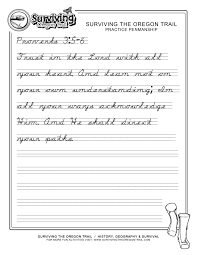 Surviving
SURVIVING THE OREGON TRAIL
PRACTICE PENMANSHIP
Proverbs 3:5-6
Trust in the Lord with all
your heart And lean not on
your own understanding; In
all your ways acknowledge
Him, And He shall direct
your paths.
SURVIVING THE OREGON TRAIL / HISTORY, GEOGRAPHY & SURVIVAL
FOR MORE FUN ACTIVITIES VISIT : WWW.SURVIVINGTHEOREGONTRAIL.COM